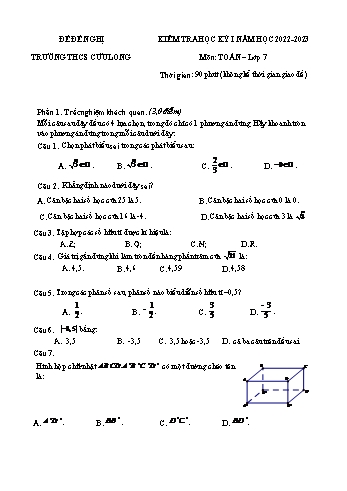 ĐỀ ĐỀ NGHỊ KIỂM TRA HỌC KỲ I NĂM HỌC 2022-2023
TRƯỜNG THCS CỬU LONG Môn: TOÁN – Lớp 7
Thời gian: 90 phút (không kể thời gian giao đề)
Phần 1. Trắc nghiệm khách quan. (3,0 điểm)
Mỗi câu sau đây đều có 4 lựa chọn, trong đó chỉ có 1 phương án đúng. Hãy khoanh tròn
vào phương án đúng trong mỗi câu dưới đây:
Câu 1. Chọn phát biểu sai trong các phát biểu sau:
A. B. C. D.
Câu 2. Khẳng định nào dưới đây sai?
A. Căn bậc hai số học của 25 là 5. B. Căn bậc hai số học của 0 là 0.
C. Căn bậc hai số học của 16 là -4. D. Căn bậc hai số học của 3 là
Câu 3. Tập hợp các số hữu tỉ được kí hiệu là:
A. Z; B. Q; C. N; D. R.
Câu 4. Giá trị gần đúng khi làm tròn đến hàng phần trăm của √21 là:
A. 4,5. B. 4,6 C. 4,59 D. 4,58
Câu 5. Trong các phân số sau, phân số nào biểu diễn số hữu tỉ –0,5?
A. 1/2. B. -1/2. C. D.
Câu 6. |-3,5| bằng:
A. 3,5 B. -3,5 C. 3,5 hoặc -3,5 D. cả ba câu trên đều sai
Câu 7.
Hình hộp chữ nhật ABCD.A'B'C'D' có một đường chéo tên
là:
A. A'D'. B. BB'. C. D'C'. D. BD'.